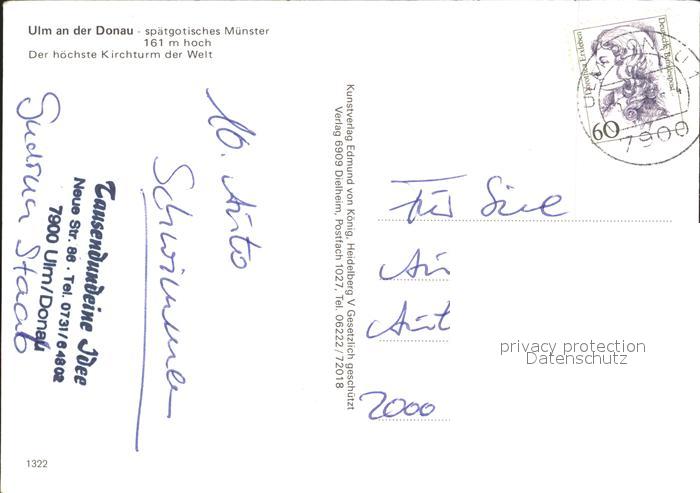 Ulm an der Donau - spätgotisches Münster
161 m hoch
Der höchste Kirchturm der Welt
16. Auto
Schwimmen
Tausendundeine Idee
Neue Str. 86 · Tel. 0731/64802
7900 Ulm/Donau
Gudrun Staab
1322
Kunstverlag Edmund von König, Heidelberg V Gesetzlich geschützt
Verlag 6909 Dielheim, Postfach 1027, Tel. 06222/72018
Deutsche Bundespost
Dorothea Erxleben
60
7900
Für Sie
2000
privacy protection
Datenschutz